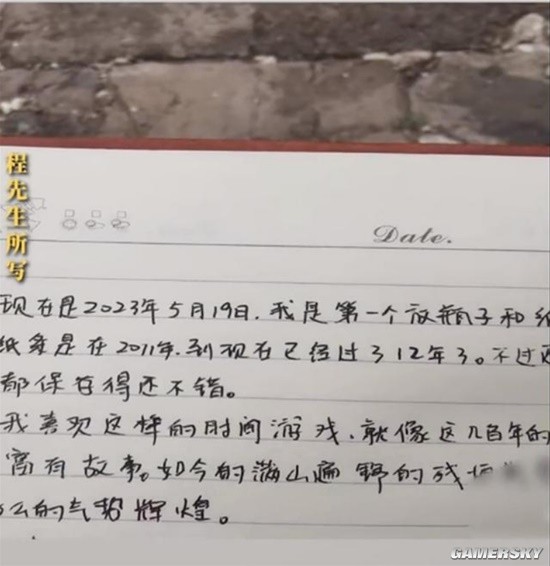 程先生所写
Date.
现在是2023年5月19日.我是第一个放瓶子和
纸条是在2011年.到现在已经过了12年了。不过
都保存得还不错。
我喜欢这样的时间游戏、就像这几百年的
富有故事。如今的满山遍野的残
么的气势辉煌。
GAMERSKY